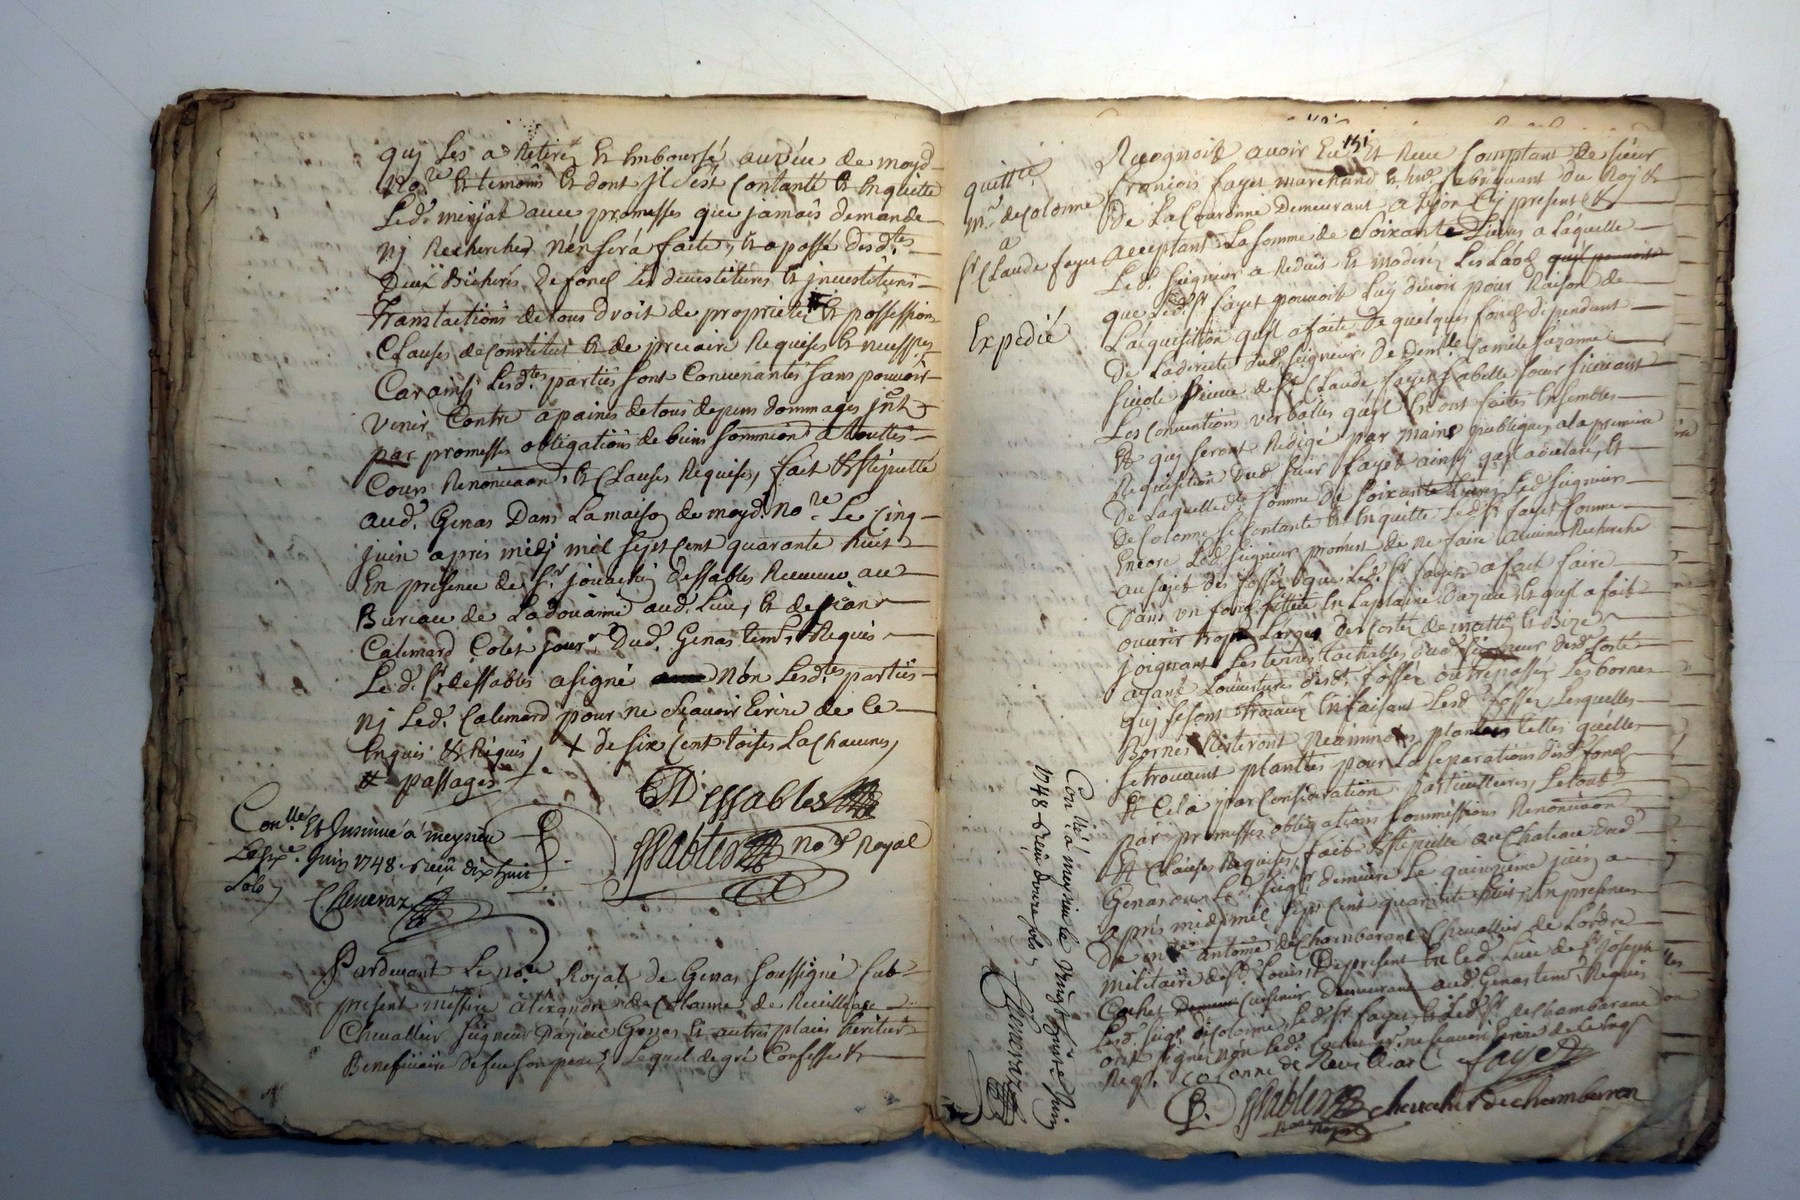 quj les a Retirez Et Emboursé au veu de moyd.
No.re Et temoins Et dont Jl c'est Contanté Et En quitte
Led. minjat avec promesses que jamais demande
nj Recherches n'en sera faitte, Et a passé desd.tes
Deux Bicherés de fond les devestitures Et jnvestitures
Translactions de tous droit de proprieté Et possession
Clauses de Constitut Et de precaire Requises Et necess.res
Car ainsj Lesd.tes parties sont Convenantes sans pouvoir
Venir Contre a paines de tous depens dommages jnt.
par promesses obligations de biens soumission a touttes
Cours Renonciaon, Et Clauses Requises, fait Et stipullé
aud. Genas Dans La maison de moyd. No.re Le Cinq
juin apres midj mil sept Cent quarante huit
En présence de S.r joüachin dessables Receveur au
Bureau de La doüanne aud. Lieu, Et de jean
Calemard Dud. Genas tem.s Requis
Le d. S.r dessables a signé non Lesd.tes parties
nj Led. Calemard pour ne Sçavoir Ecrire de Ce
Enquis Et Requis / + de six Cent toises La Chacune,
Et passages
Dessables
Sablier no.re Royal
Con.llé Et Jnsinué a meysieu
Le six.e Juin 1748. Receu dix huit
sols
Cheneraz
Pardevant Le no.re Royal de Genas soussigné fut
present messire alexandre de Colonne de Revilliasc
Chevallier seigneur Genas Et autres places héritier
Beneficiaire de feu son pere, Lequel de gré Confesse Et
151
quitt.ce
M.r de Colonne
a
S.r Claude fayet
Expedié
Recognoit avoir Eu Et Receu Comptant de sieur
francois fayet marchand Et fabriquant du Roy Et
De La Couronne Demeurant a Lyon Cy present Et
acceptant La somme de Soixante Livres a Laquelle
Led. seigneur a Reduit Et moderéz Les Laods
que Led. S.r fayet pouvoit Luy devoir pour Raison de
L'acquisition qu'il a faite De quelques fonds dependant
De La directe dud. seigneur, De Dem.lle
de S.r Claude fayet sa belle soeur suivant
Les Conventions verballes qu'ils En ont faites Ensembles
Et quj seront Redigé par mains publiques a la premiere
Requisition dud. sieur fayet ainsj qu'il a declaré, Et
De Laquelle d.te somme de soixante Livres Led. seigneur
de Colonne se Contante Et En quitte Led. S.r fayet Comme
Encore Led. seigneur promest de ne faire aucunes Recherche
au sujet des fossés que Led. S.r fayet a fait faire
Dans un fond scittué En La plaine Et qu'il a fait
ouvrir trop Larges des Costés de matin Et Bize
joignant Les terres dud. seigneur desd. Costé
ayant L'ouverture desd. fossés outrepassés Les bornes
quj se sont trouvéz En faisant Lesd. fossés Lesquelles
Bornes Resteront neanmoins plantées telles quelles
se trouvent plantées pour La separation desd. fonds
Et Cela par Consideration particullieres, Le tout
par promesses obligations soummissions Renonciaon
Et Clauses Requises, fait Et stipullé au Chateau dud.
Genas ou Led. seig.r demeure Le quinzieme juin a-
apres midj mil sept Cent quarante huit, En presence
De m.re antoine de Chambarant Chevallier de L'ordre
militaire de S.t Louis, De present En Led. Lieu Et de S.r joseph
Cochet Cuisinier demeurant aud. Genas tem.s Requis
Led. seig.r de Colonne, Led. S.r fayet, Et Led. S.r de Chambarant
ont signé non Led. Cochet pour ne sçavoir Ecrire de Ce Enq.s
Req.s
Colonne de Revilliasc fayet
Sablier Chevalier de Chambarran
no.re Royal
Con.llé a meysieu le Vingt huit.e Juin
1748 Receu douze sols
Cheneraz